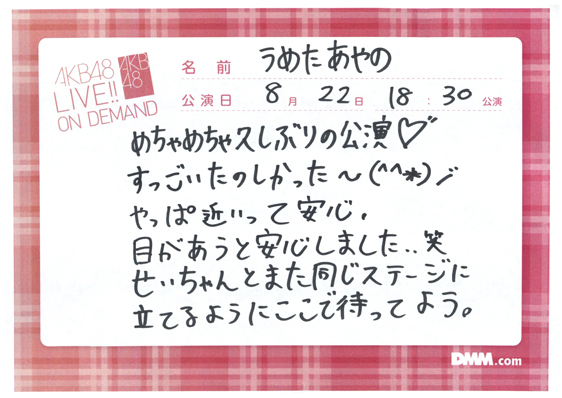 AKB48
LIVE!!
ON DEMAND
AKB
48
名前 うめたあやの
公演日 8月 22日 18:30公演
めちゃめちゃ久しぶりの公演♡
すっごいたのしかった〜(^^*)ノ
やっぱ近いって安心。
目があうと安心しました..笑
せいちゃんとまた同じステージに
立てるようにここで待ってよう。
DMM.com